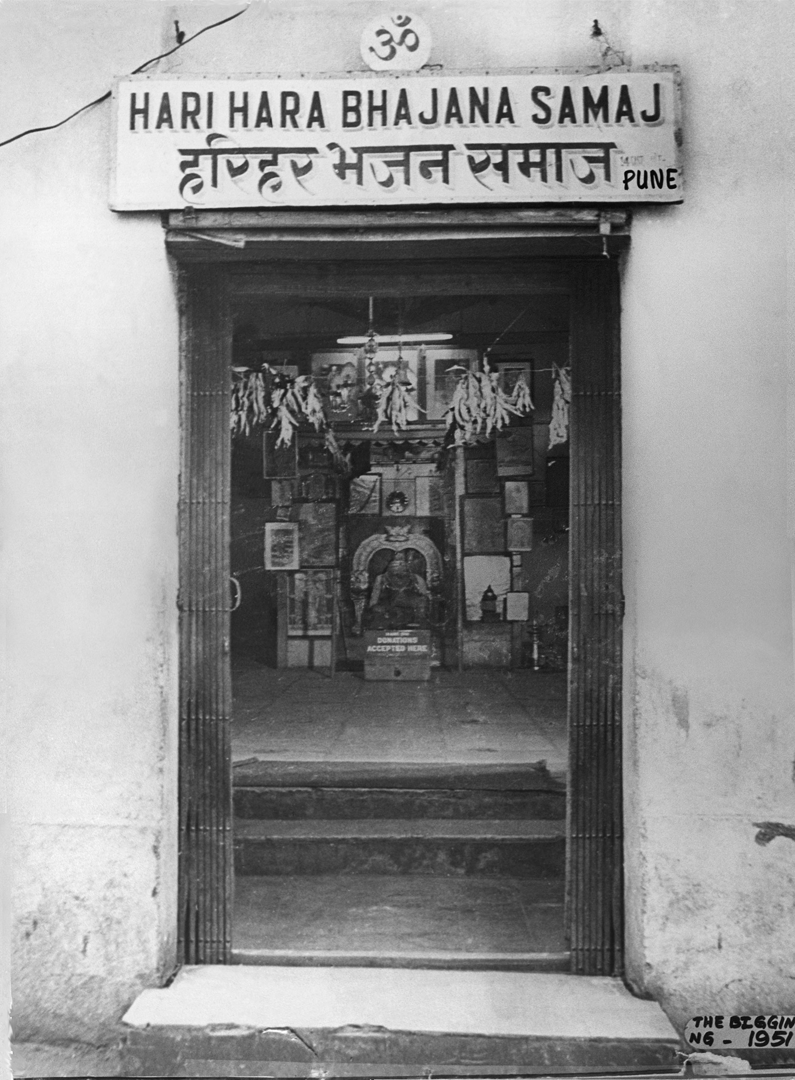 ॐ
HARI HARA BHAJANA SAMAJ
हरिहर भजन समाज
PUNE
DONATIONS
ACCEPTED HERE
THE BIGGIN
NG - 1951